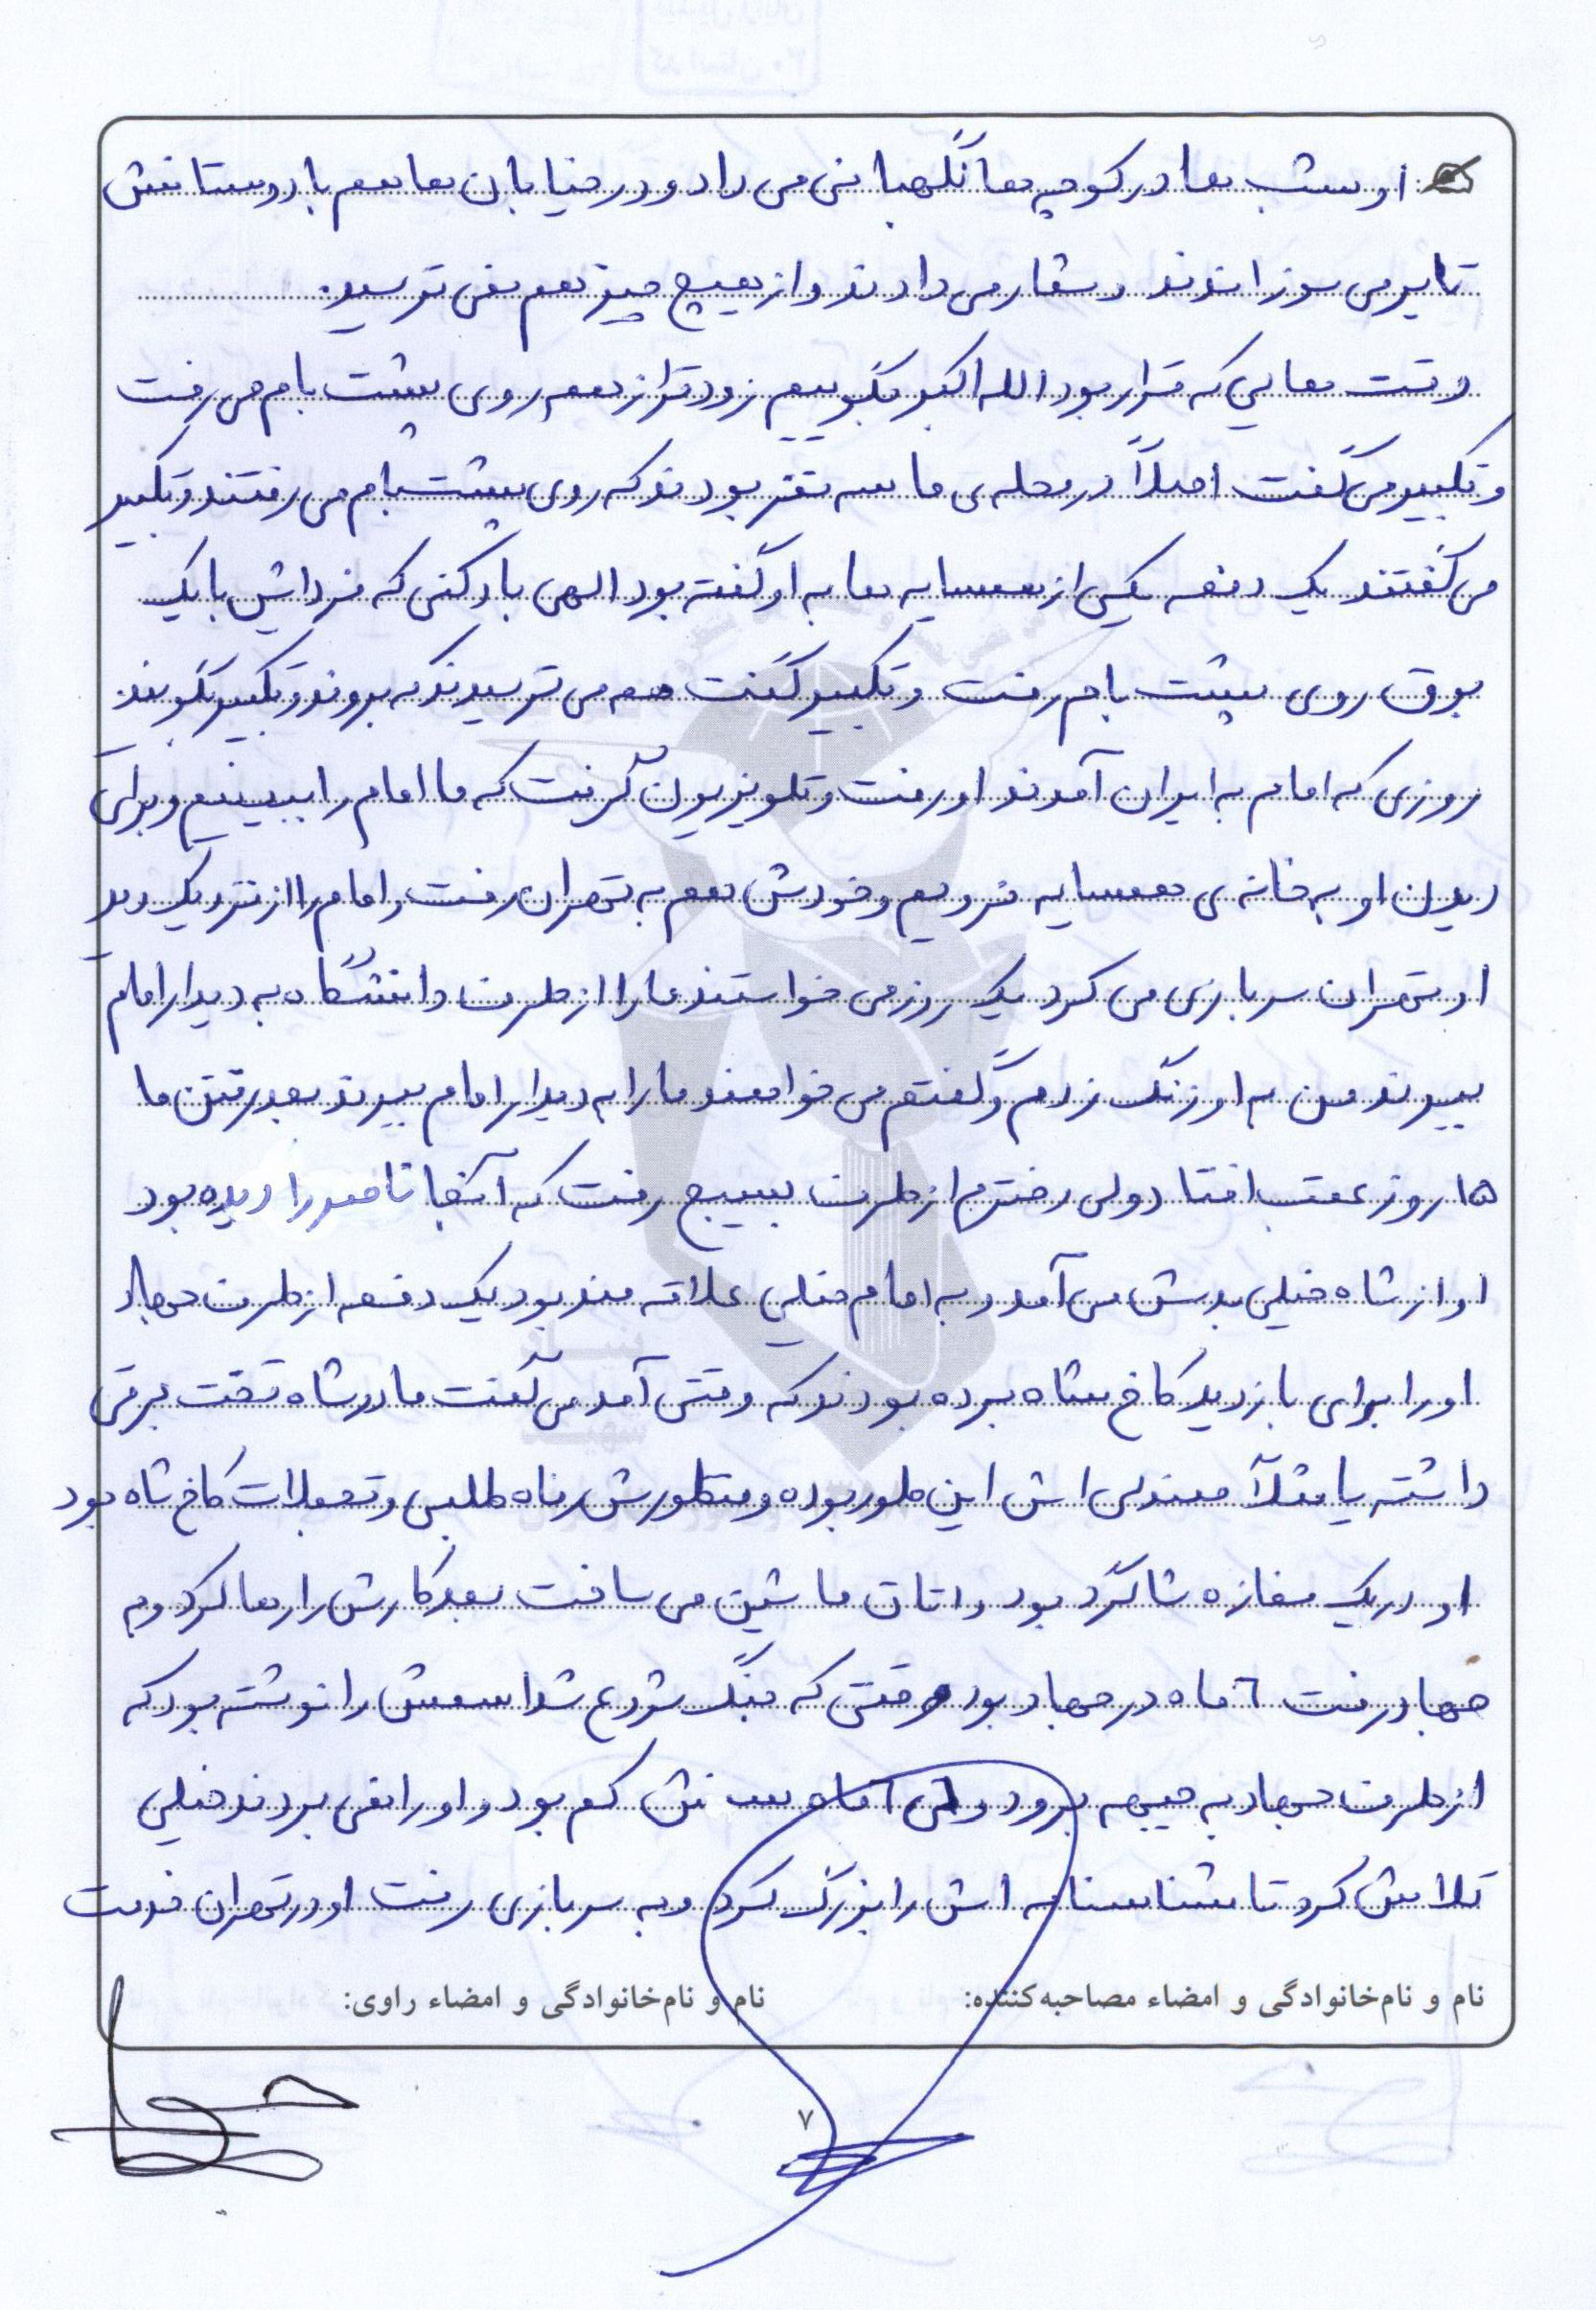 او شب ها در کوچه ها نگهبانی می داد و در خیابان ها هم با دوستانش
تایر می سوزاندند و شعار می دادند و از هیچ چیز هم نمی ترسید.
وقت هایی که قرار بود الله اکبر بگوییم زودتر از همه روی پشت بام می رفت
و تکبیر می گفت اصلاً در محله ی ما سه نفر بودند که روی پشت بام می رفتند و تکبیر
می گفتند یک دفعه یکی از همسایه ها به او گفته بود الهی باد کنی که فردایش با یک
بوق روی پشت بام رفت و تکبیر گفت همه می ترسیدند که بروند و تکبیر بگویند.
روزی که امام به ایران آمدند او رفت و تلویزیون گرفت که ما امام را ببینیم و برای
دیدن او به خانه ی همسایه نرویم و خودش هم به تهران رفت و امام را از نزدیک دید
او تهران سربازی می کرد یک روز می خواستند ما را از طرف دانشگاه به دیدار امام
ببرند من به او زنگ زدم و گفتم می خواهند ما را به دیدار امام ببرند بعد رفتن ما
۱۵ روز عقب افتاد ولی دخترم از طرف بسیج رفت که آنجا ناصر را دیده بود
او از شاه خیلی بدش می آمد و به امام خیلی علاقه مند بود یک دفعه از طرف جهاد
او را برای بازدید کاخ شاه برده بودند که وقتی آمد می گفت مادر شاه تخت برقی
داشته یا مثلاً صندلی اش این طور بوده و منظورش رفاه طلبی و تجملات کاخ شاه بود
او در یک مغازه شاگرد بود و اتاق ماشین می ساخت بعد کارش را رها کرد و به
جهاد رفت ۶ ماه در جهاد بود وقتی که جنگ شروع شد اسمش را نوشته بود که
از طرف جهاد به جبهه برود ولی ۶ ماه سنش کم بود و او را نمی بردند خیلی
تلاش کرد تا شناسنامه اش را بزرگ کرد و به سربازی رفت او در تهران خدمت
نام و نام‌خانوادگی و امضاء مصاحبه‌کننده: نام و نام‌خانوادگی و امضاء راوی:
۷